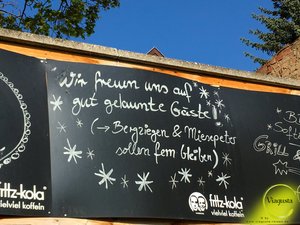 Wir freuen uns auf
gut gelaunte Gäste!
(→ Bergziegen & Miesepeter
sollen fern bleiben)
fritz-kola
vielviel koffein
fritz-kola
vielviel koffein
Viagusta